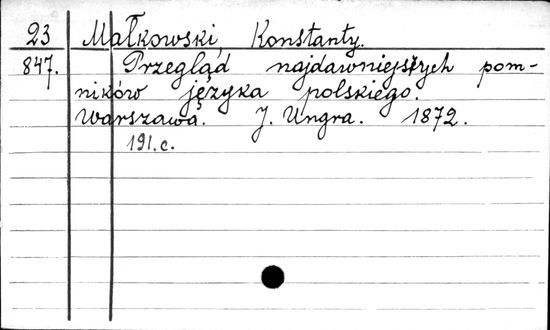 23 Małkowski, Konstanty.
847. Przegląd najdawniejszych pom-
ników języka polskiego.
Warszawa. J. Ungra. 1872.
191.c.